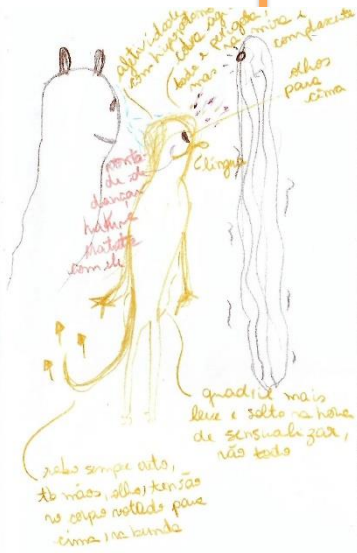 afetividade
com hipopótamo
cobra
toda e
mas
na mira e
complexista
olhos
para
cima
(língua
vonta-
de de
dançar
hakuna
matata
com ele
quadril mais
leve e solto na hora
de sensualizar,
não todo
rabo sempre alto,
tb mãos, olho, tensão
no corpo voltado para
cima, na bunda